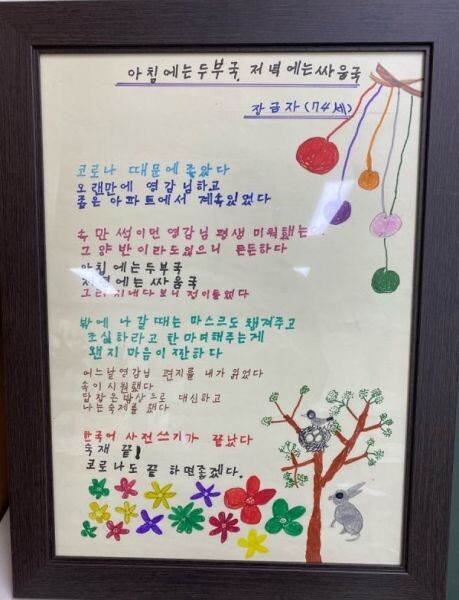 아침에는두부국, 저녁에는싸움국
장금자(74세)
코로나 때문에 좋았다
오랜만에 영감님하고
좁은 아파트에서 계속있었다
속만 썩이던 영감님 평생 미워했는데
그 양반이라도있으니 든든하다
아침에는두부국
저녁에는싸움국
그리 지내다보니 정이들었다
밖에 나갈때는 마스크도 챙겨주고
조심하라고 한마디해주는게
왠지 마음이 짠하다
어느날 영감님 편지를 내가 읽었다
속이 시원했다
답장은 밥상으로 대신하고
나는숙제를 했다
한국어 사전쓰기가 끝났다
숙재 끝!
코로나도 끝 하면좋겠다.